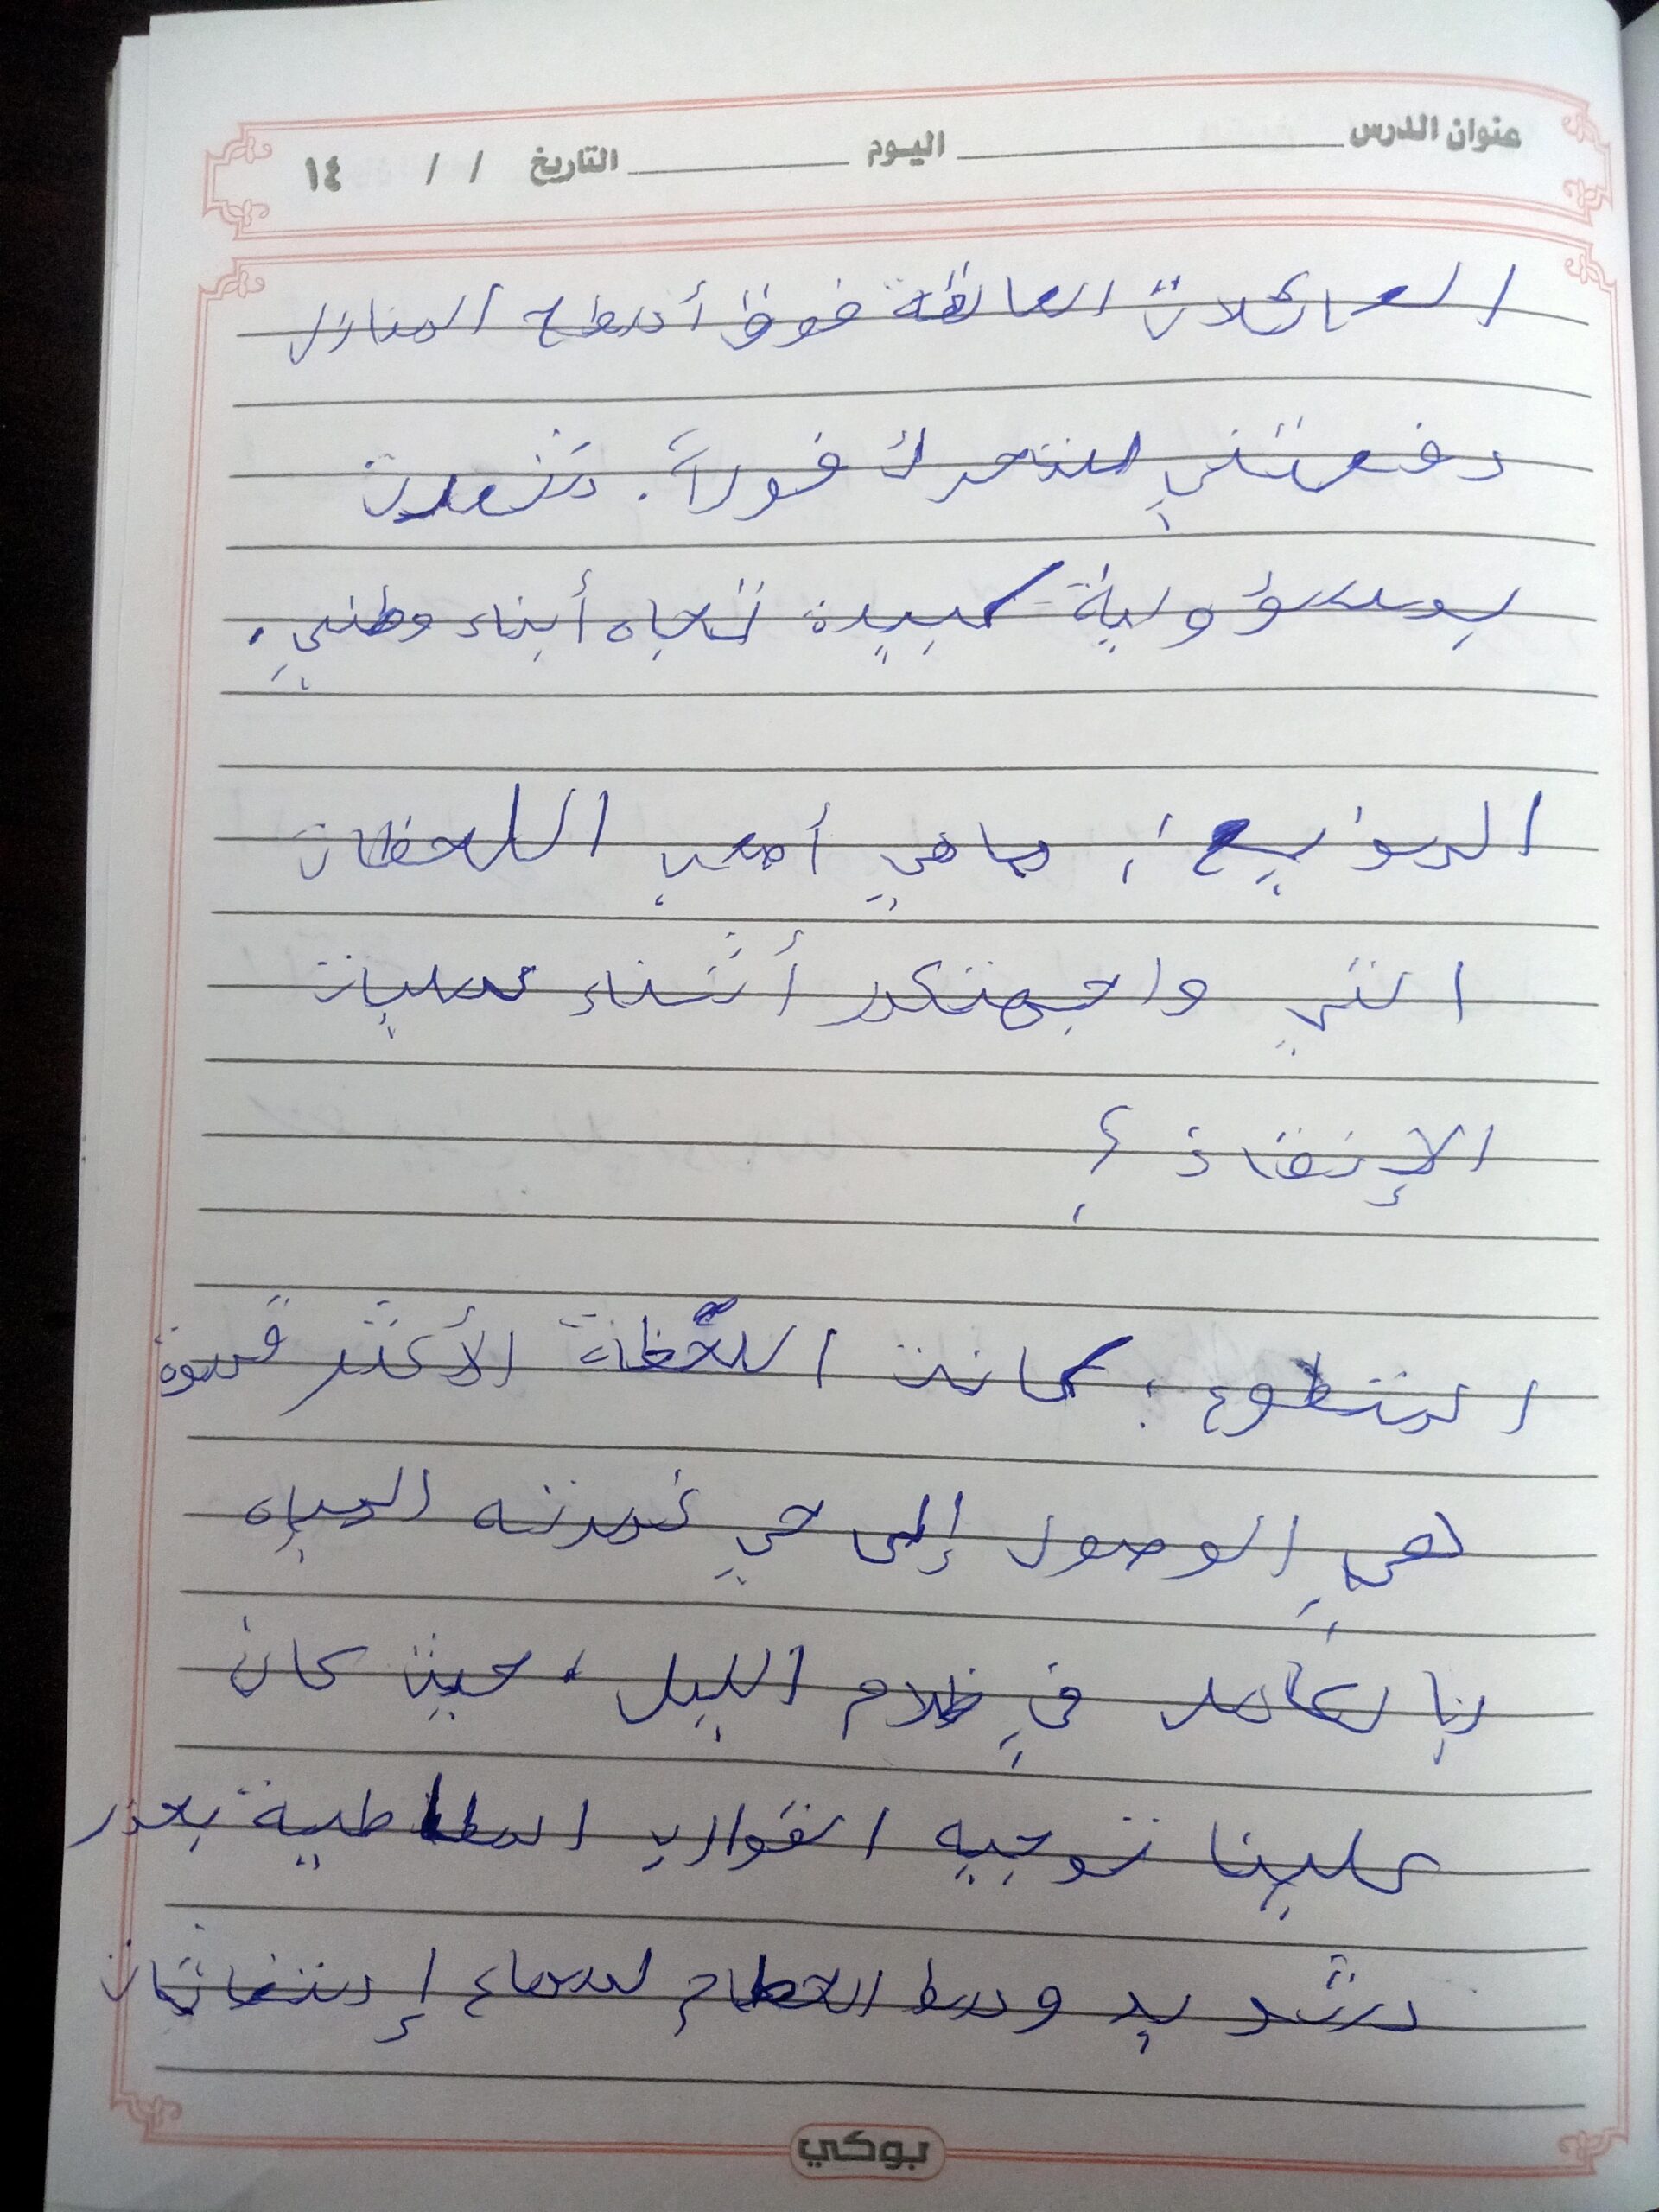 عنوان الدرس اليوم التاريخ / / ١٤
العائلات العالقة فوق أسطح المنازل
دفعتني للتحرك فوراً. شعرت
بمسؤولية كبيرة تجاه أبناء وطني.
المذيع: ما هي أصعب اللحظات
التي واجهتكم أثناء عمليات
الإنقاذ؟
المتطوع: كانت اللحظة الأكثر قسوة
هي الوصول إلى حي غمرته المياه
بالكامل في ظلام الليل، حيث كان
علينا توجيه القوارب المطاطية بحذر
شديد وسط الحطام لسماع إستغاثات
بوكي